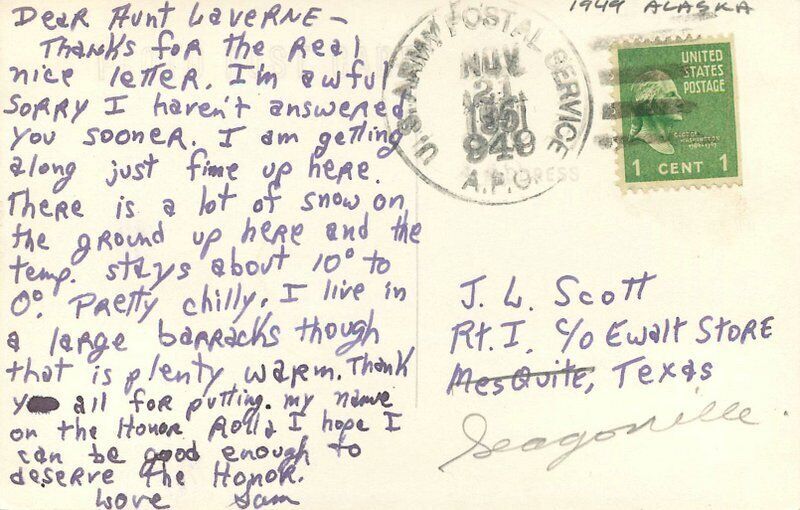 Dear Aunt Laverne -
Thanks for the real
nice letter. I'm awful
sorry I haven't answered
you sooner. I am getting
along just fime up here.
There is a lot of snow on
the ground up here and the
temp. stays about 10° to
0°. Pretty chilly. I live in
a large barracks though
that is plenty warm. Thank
y all for putting. my name
on the Honor Rolla I hope I
can be good enough to
deserve the Honor.
Love Sam
1949 ALASKA
U.S. ARMY POSTAL SERVICE
NOV
21
1949
A.P.O.
UNITED
STATES
POSTAGE
1 CENT 1
J. L. Scott
Rt. I, c/o Ewalt Store
Mesquite, Texas
Seagoville